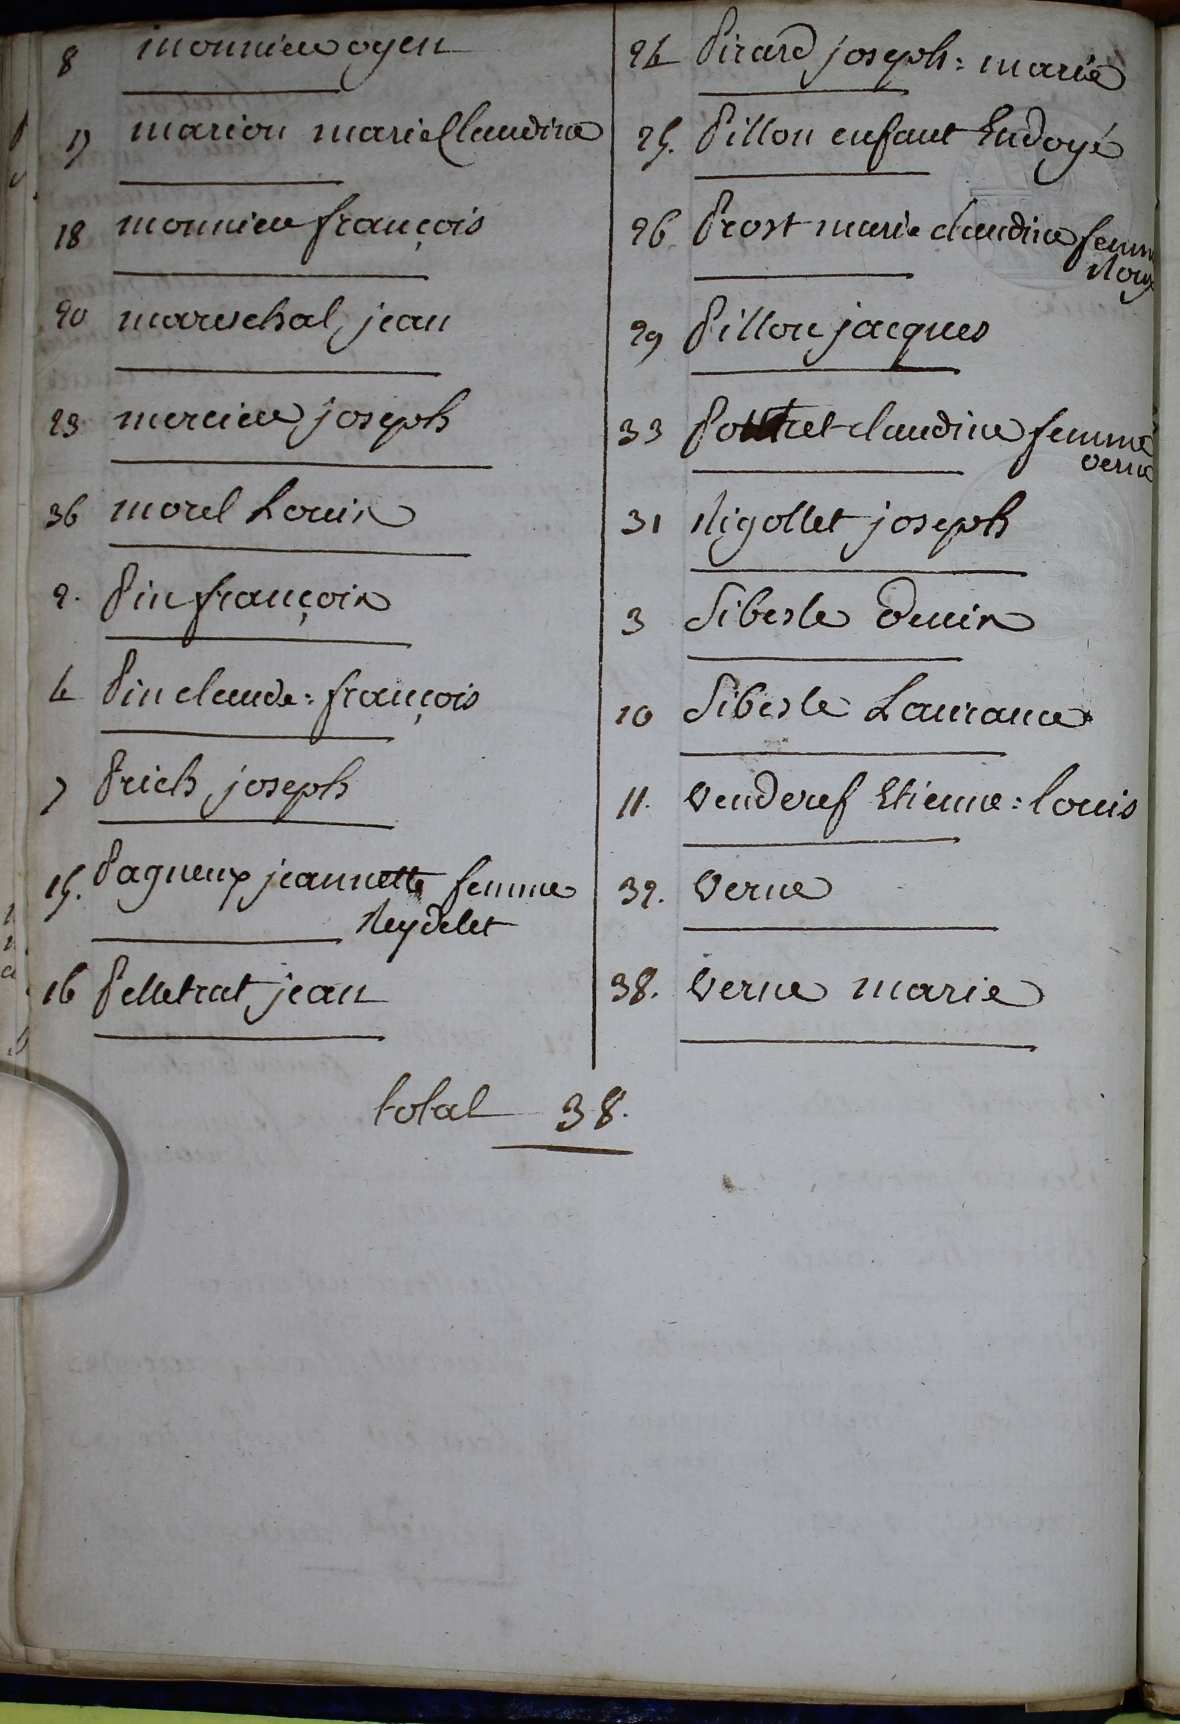 8 monnier oyen
17 marion marie Claudine
18 monnier françois
20 mareschal jean
23 mercier joseph
36 morel Louis
2. Pin françois
4 Pin claude = françois
7 Prich joseph
15. Pagneux jeannette femme
Reydelet
16 Pelletrat jean
24 Pirard joseph = marie
25. Pillon enfant Endoyé
26 Prost marie claudine femme
Roux
29 Pillon jacques
33 Pottret claudine femme
verne
31 Rigollet joseph
3 Siberle Denis
10 Siberle Laurance
11. Venderef Etienne = louis
32. Verne
38. Verne marie
total 38.